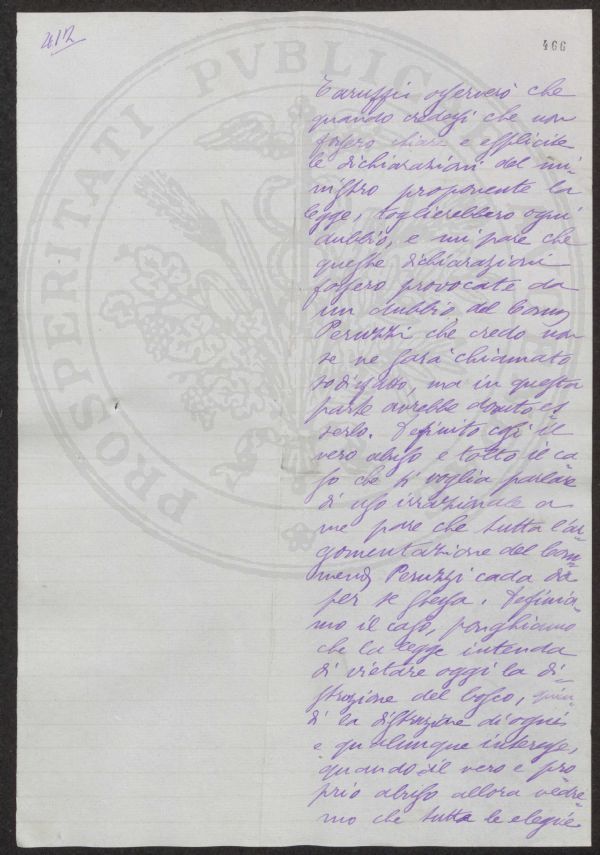 466
Taruffi, osserverò che
quando credesi che non
fossero chiare e esplicite
le dichiarazioni del mi-
nistro proponente la
legge, toglierebbero ogni
dubbio, e mi pare che
queste dichiarazioni
fossero provocate da
un dubbio del Comm
Peruzzi che credo non
se ne sarà chiamato
sodisfatto, ma in questa
parte avrebbe dovuto es
serlo. Definito così il
vero abuso e tolto il ca
so che si voglia parlare
di uso irrazionale a
me pare che tutta l'ar-
gomentazione del Com-
mend Peruzzi cada da
per se stessa. Definia-
mo il caso, ponghiamo
che la legge intenda
di vietare oggi la di-
struzione del bosco, quin-
di la distruzione di ogni
e qualunque interesse,
quando il vero e pro
prio abuso allora vedre
mo che tutte le elegue
PROSPERITATI PVBLICAE